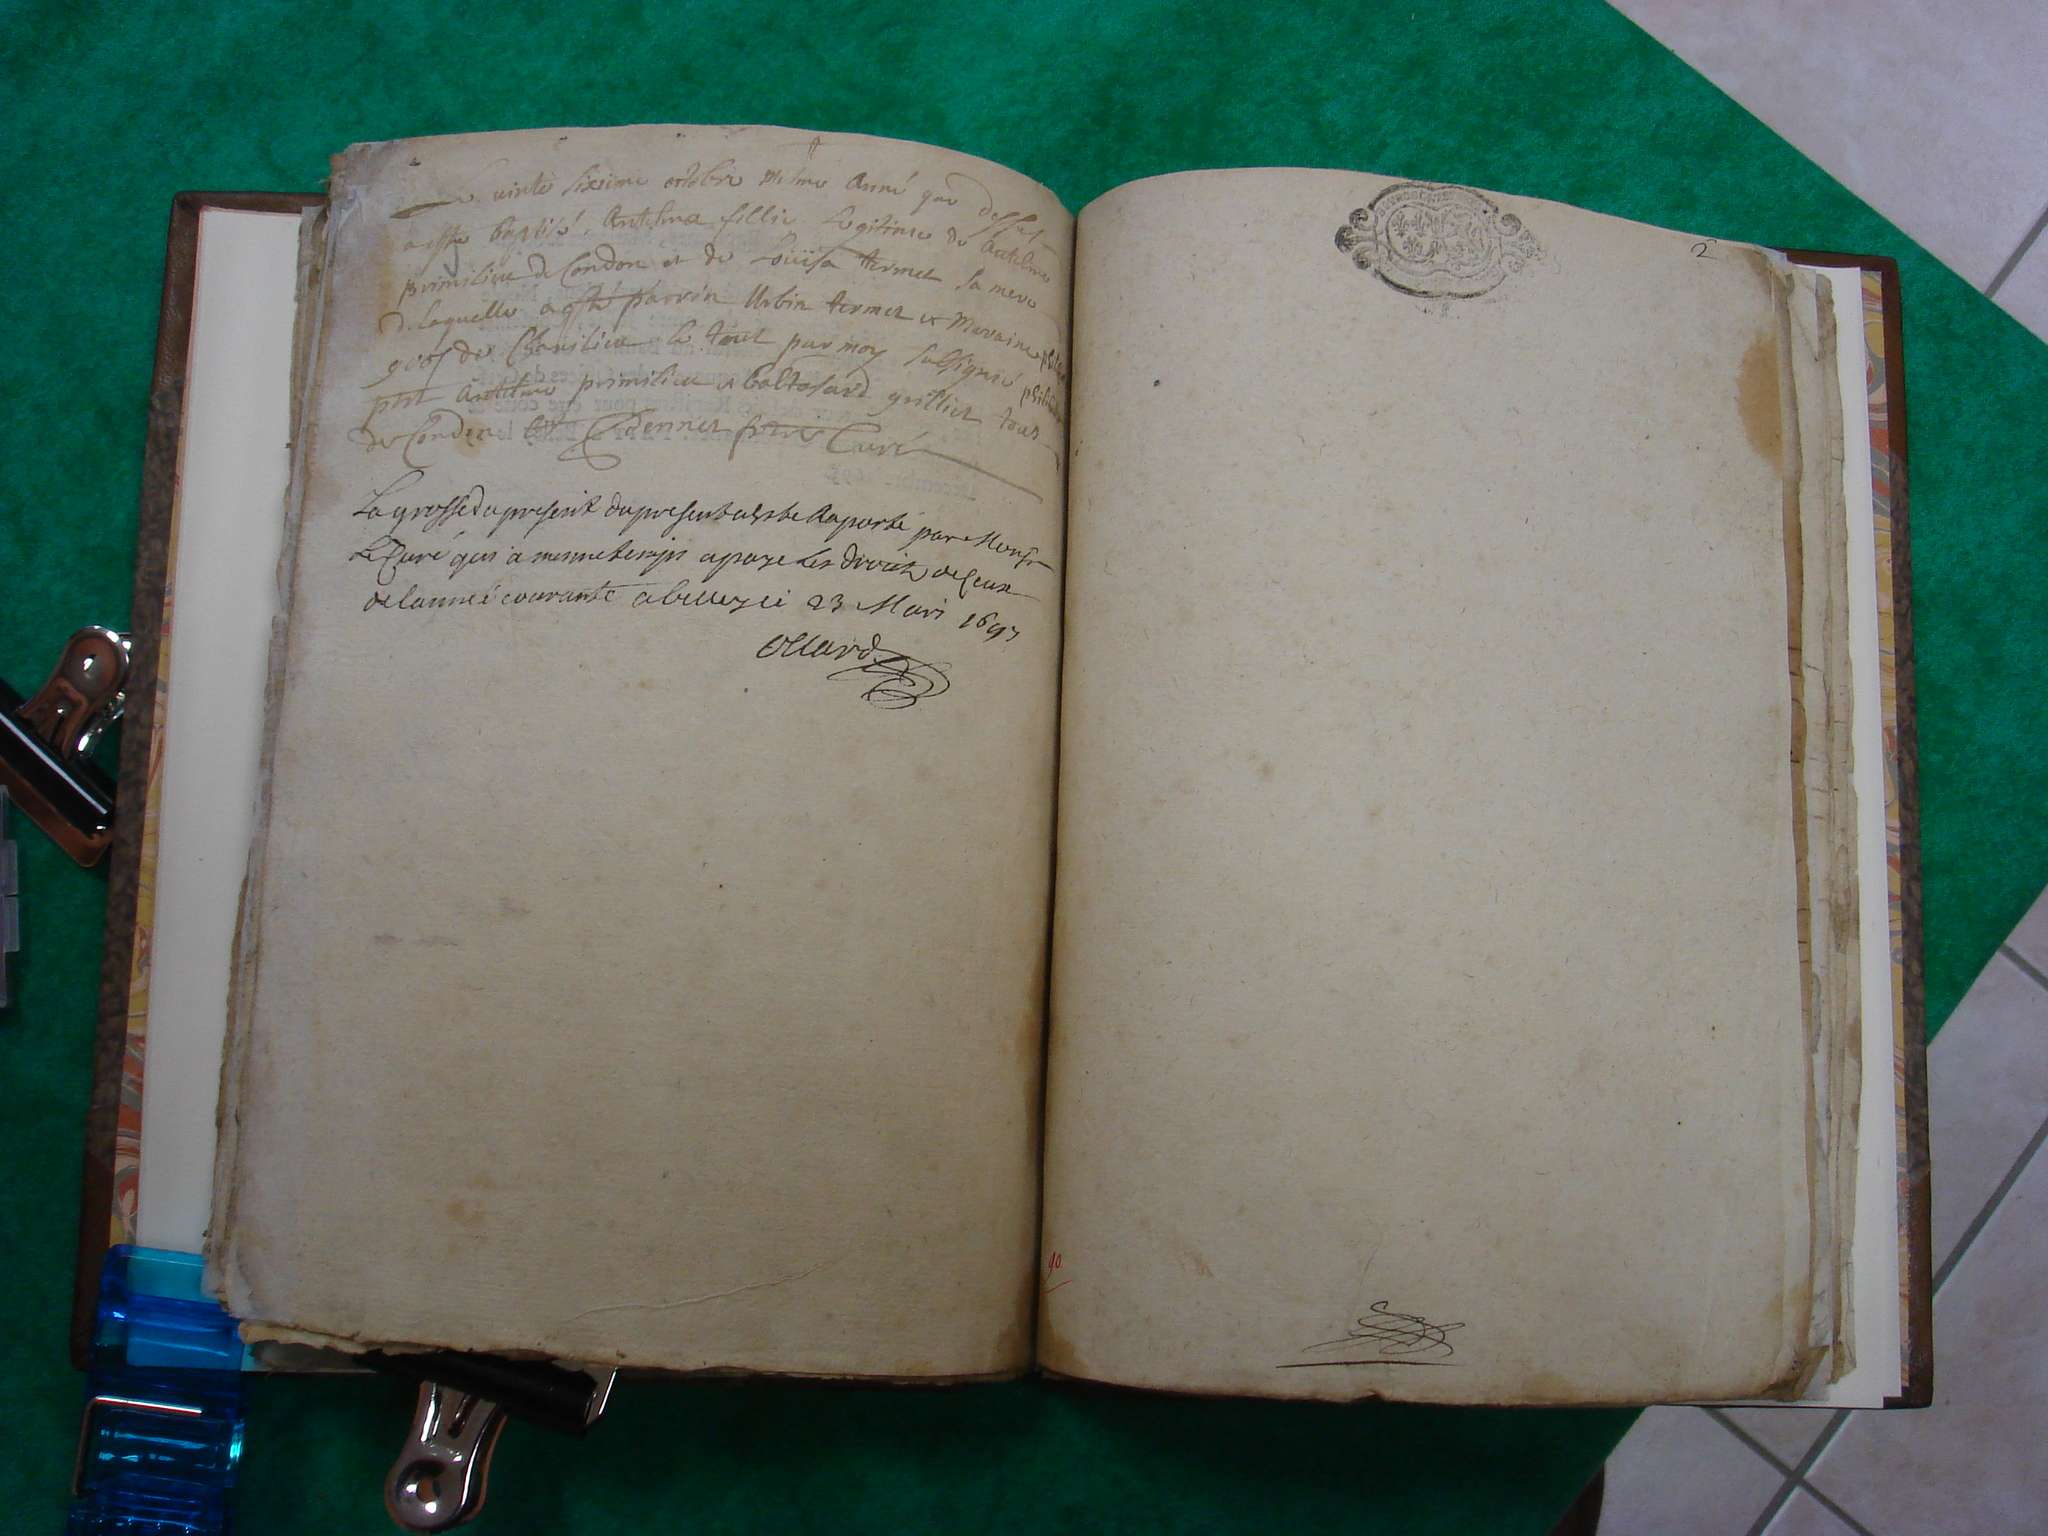 Le vinte sixieme octobre mesme Anné que dessut
a esté baptisé Antelma fillie Legitime de Antelme
primilieu de Condon et de Loüisa termet sa mere
de laquelle a esté parrin Urbin termet et Marraine
de Charilieu le tout par moy Subsigné
ptst Antelme primilieu et baltasard grilliet tous
de Condon Dennet ptre Curé
La grosse du present du present a este Raporté par Monsr
Le Curé qui a mesme temps a paye Les droicts de Ceux
de lanneé courante a belley ce 23 Mars 1697
Ollard
2
90.